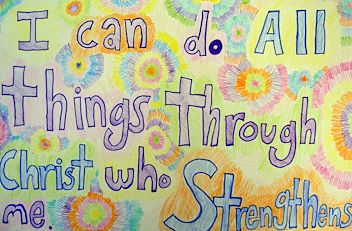 I can do All
things Through
Christ who Strengthens
me.